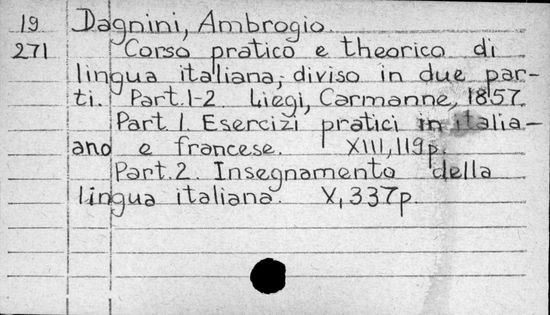 19 Dagnini, Ambrogio.
271 Corso pratico e theorico di
lingua italiana, diviso in due par-
ti. Part. 1-2 Liegi, Carmanne, 1857.
Part. 1. Esercizi pratici in italia-
ano e francese. XIII, 119p.
Part. 2. Insegnamento della
lingua italiana. X, 337p.